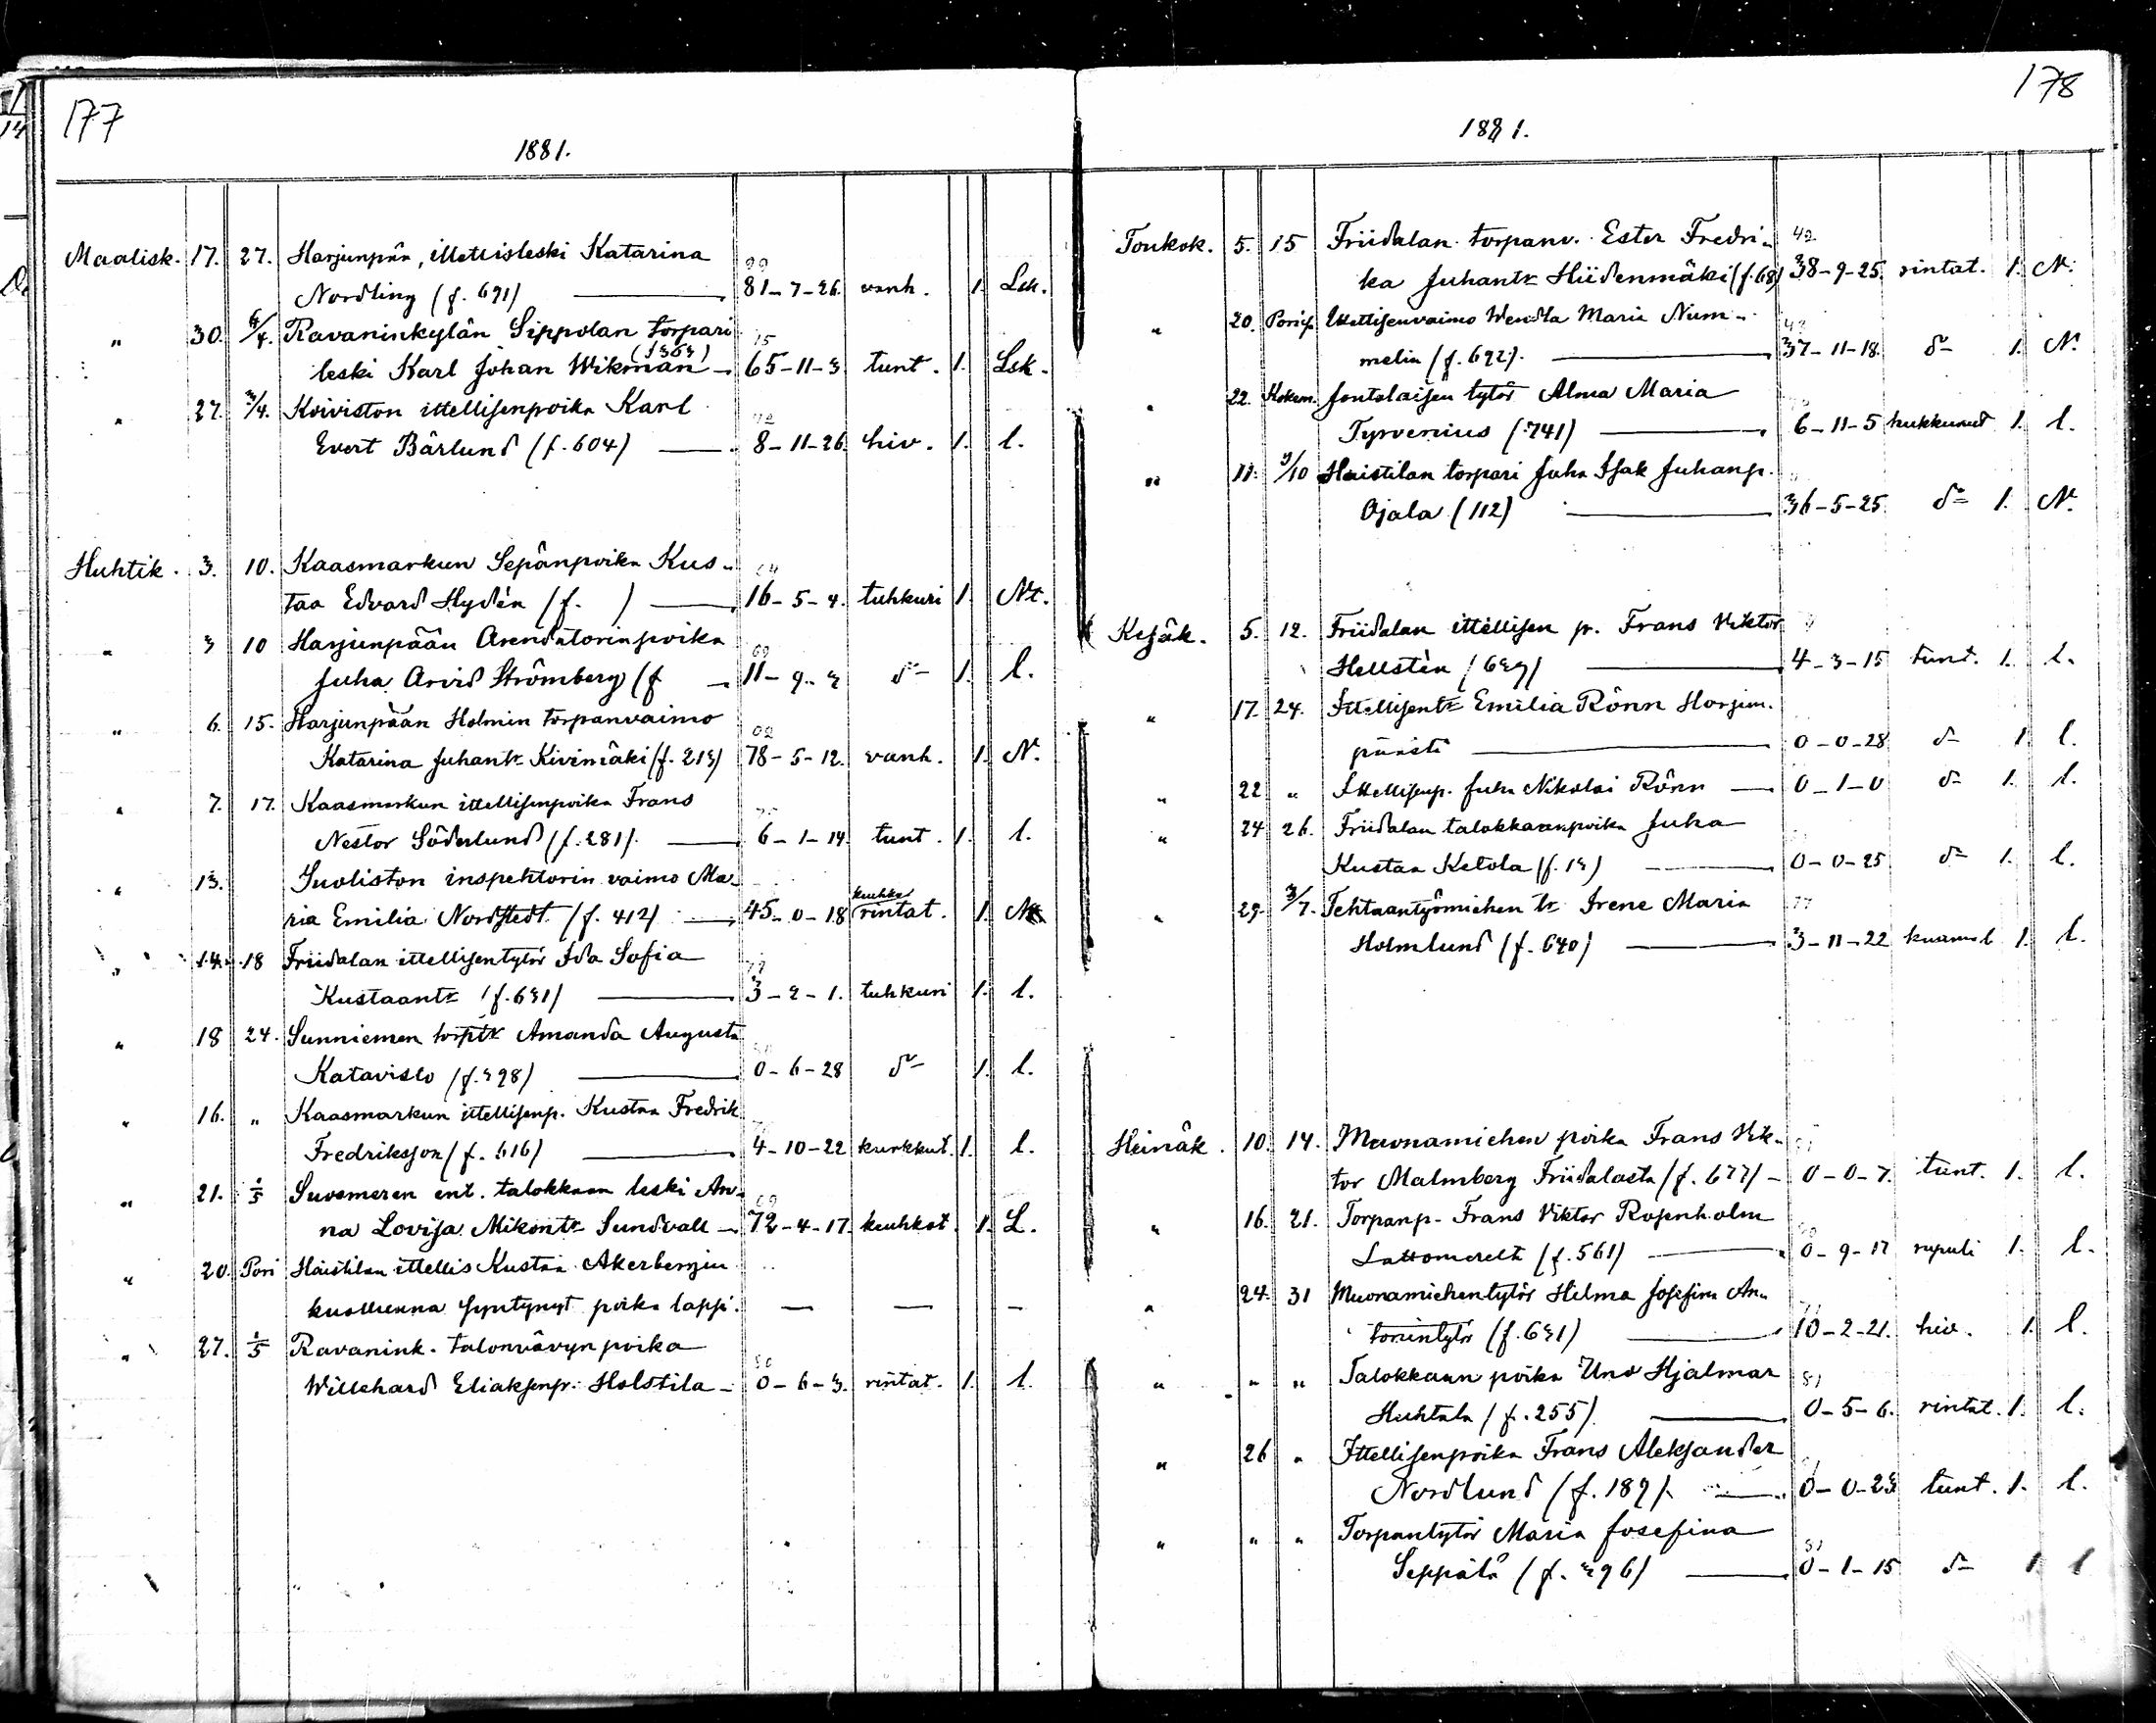 177
1881.
Maalisk. 17. 27. Harjunpään, ittellisleski Katarina
Nordling (f. 691) 81-7-26. vanh. 1. Lsk.
" 30. 6/4. Ravaninkylän Sippolan torpari
leski Karl Johan Wikman 65-11-3 tunt. 1. Lsk.
" 27. 3/4. Koiviston ittellisenpoika Karl
Evert Bärlund (f. 604) 8-11-26. hiv. 1. l.
Huhtik. 3. 10. Kaasmarkun Sepänpoika Kus-
taa Edvard Hydén (f. ) 16-5-4. tuhkuri 1. Nt.
" 3 10 Harjunpään Arendatorinpoika
Juha Arvid Strömberg (f 11-9-3 d:o 1. l.
" 6. 15. Harjunpään Holmin torpanvaimo
Katarina Juhantr Kivimäki (f. 213) 78-5-12. vanh. 1. N.
" 7. 17. Kaasmarkun ittellisenpoika Frans
Nestor Söderlund (f. 281). 6-1-14. tunt. 1. l.
" 13. Suoliston inspehtorin vaimo Ma-
ria Emilia Nordstedt (f. 412) 45-0-18 keuhko rintat. 1.
" 14. 18 Friidalan ittellisentytör Ida Sofia
Kustaantr (f. 631) 3-2-1. tuhkuri 1. l.
" 18 24. Sunniemen torptr Amanda Augusta
Katavisto (f. 398) 0-6-28 d:o 1. l.
" 16. " Kaasmarkun ittellisenp. Kustaa Fredrik
Fredriksson (f. 616) 4-10-22 kurkkut. 1. l.
" 21. 1/5 Suosmeren ent. talokkaan leski An-
na Lovisa Mikontr Sundvall 72-4-17. keuhkot. 1. L.
" 20. Pori Haistilan ittellis Kustaa Akerbergin
kuolleena syntynyt poika lapsi. — — —
" 27. 1/5 Ravanink. talonvävyn poika
Willehard Eliaksenp. Holstila 0-6-3. rintat. 1. l.
178
1881.
Toukok. 5. 15 Friidalan torpanv. Ester Fredri-
ka Juhantr Hiidenmäki (f. 68) 38-9-25. rintat. 1. N.
" 20. Ittellisenvaimo Wendla Maria Num-
melin (f. 692). 37-11-18. d:o 1. N.
" 22. Kokem. tytör Alma Maria
Tyrvenius (741) 6-11-5 hukkunut 1. l.
" 11. 9/10 Haistilan torpari Juha Isak Juhanp.
Ojala (112) 36-5-25 d:o 1. N.
Kesäk. 5. 12. Friidalan ittellisen p. Frans Viktor
Hellstén (639) 4-3-15 tunt. 1. l.
" 17. 24. Ittellisentr Emilia Rönn Harjun-
päästä 0-0-28 d:o 1 l.
" 22 " Ittellisenp. Juha Nikolai Rönn 0-1-0 d:o 1. l.
" 24 26. Friidalan talokkaanpoika Juha
Kustaa Ketola (f. 13) 0-0-25 d:o 1. l.
" 29. 3/7. Tehtaantyömiehen tr Irene Maria
Holmlund (f. 640) 3-11-22 1. l.
Heinäk. 10. 14. Muonamiehen poika Frans Vik-
tor Malmberg Friidalasta (f. 677) 0-0-7. tunt. 1. l.
" 16. 21. Torpanp. Frans Viktor Rosenholm
Lattomerelt (f. 561) 0-9-17 rupuli 1. l.
" 24. 31 Muonamiehentytör Hilma Josefina An-
tonintytör (f. 631) 10-2-21. hiv. 1. l.
" " " Talokkaan poika Uno Hjalmar
Huhtala (f. 255) 0-5-6. rintat. 1. l.
" 26 " Ittellisenpoika Frans Aleksander
Nordlund (f. 189). 0-0-23 tunt. 1. l.
" " " Torpantytör Maria Josefina
Seppälä (f. 396) 0-1-15 d:o 1 l